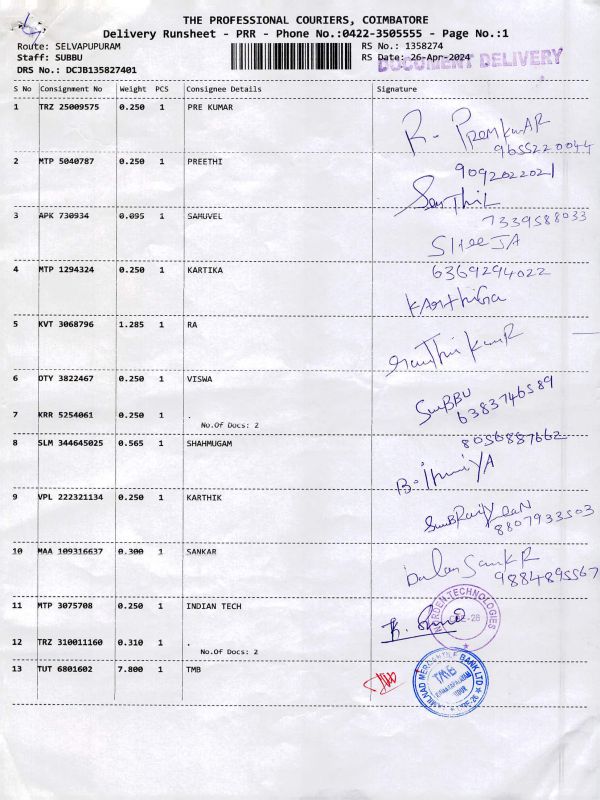 THE PROFESSIONAL COURIERS, COIMBATORE
Delivery Runsheet - PRR - Phone No.:0422-3505555 - Page No.:1
Route: SELVAPUPURAM RS No.: 1358274
Staff: SUBBU RS Date: 26-Apr-2024
DOCUMENT DELIVERY
DRS No.: DCJB135827401
S No Consignment No Weight PCS Consignee Details Signature
1 TRZ 25009575 0.250 1 PRE KUMAR
R. PREMKUMAR
9655220044
2 MTP 5040787 0.250 1 PREETHI
9092022021
Senthil
3 APK 730934 0.095 1 SAMUVEL
7339588033
SHeeJA
4 MTP 1294324 0.250 1 KARTIKA
6369294022
Karthiga
5 KVT 3068796 1.285 1 RA
6 DTY 3822467 0.250 1 VISWA
SuBBU
6383746589
7 KRR 5254061 0.250 1 .
No.Of Docs: 2
8 SLM 344645025 0.565 1 SHAHMUGAM
8056887662
9 VPL 222321134 0.250 1 KARTHIK
8807933503
10 MAA 109316637 0.300 1 SANKAR
9884895567
11 MTP 3075708 0.250 1 INDIAN TECH
TECHNOLOGIES
12 TRZ 310011160 0.310 1 .
No.Of Docs: 2
13 TUT 6801602 7.800 1 TMB
TAMILNAD MERCANTILE BANK LTD
TMB